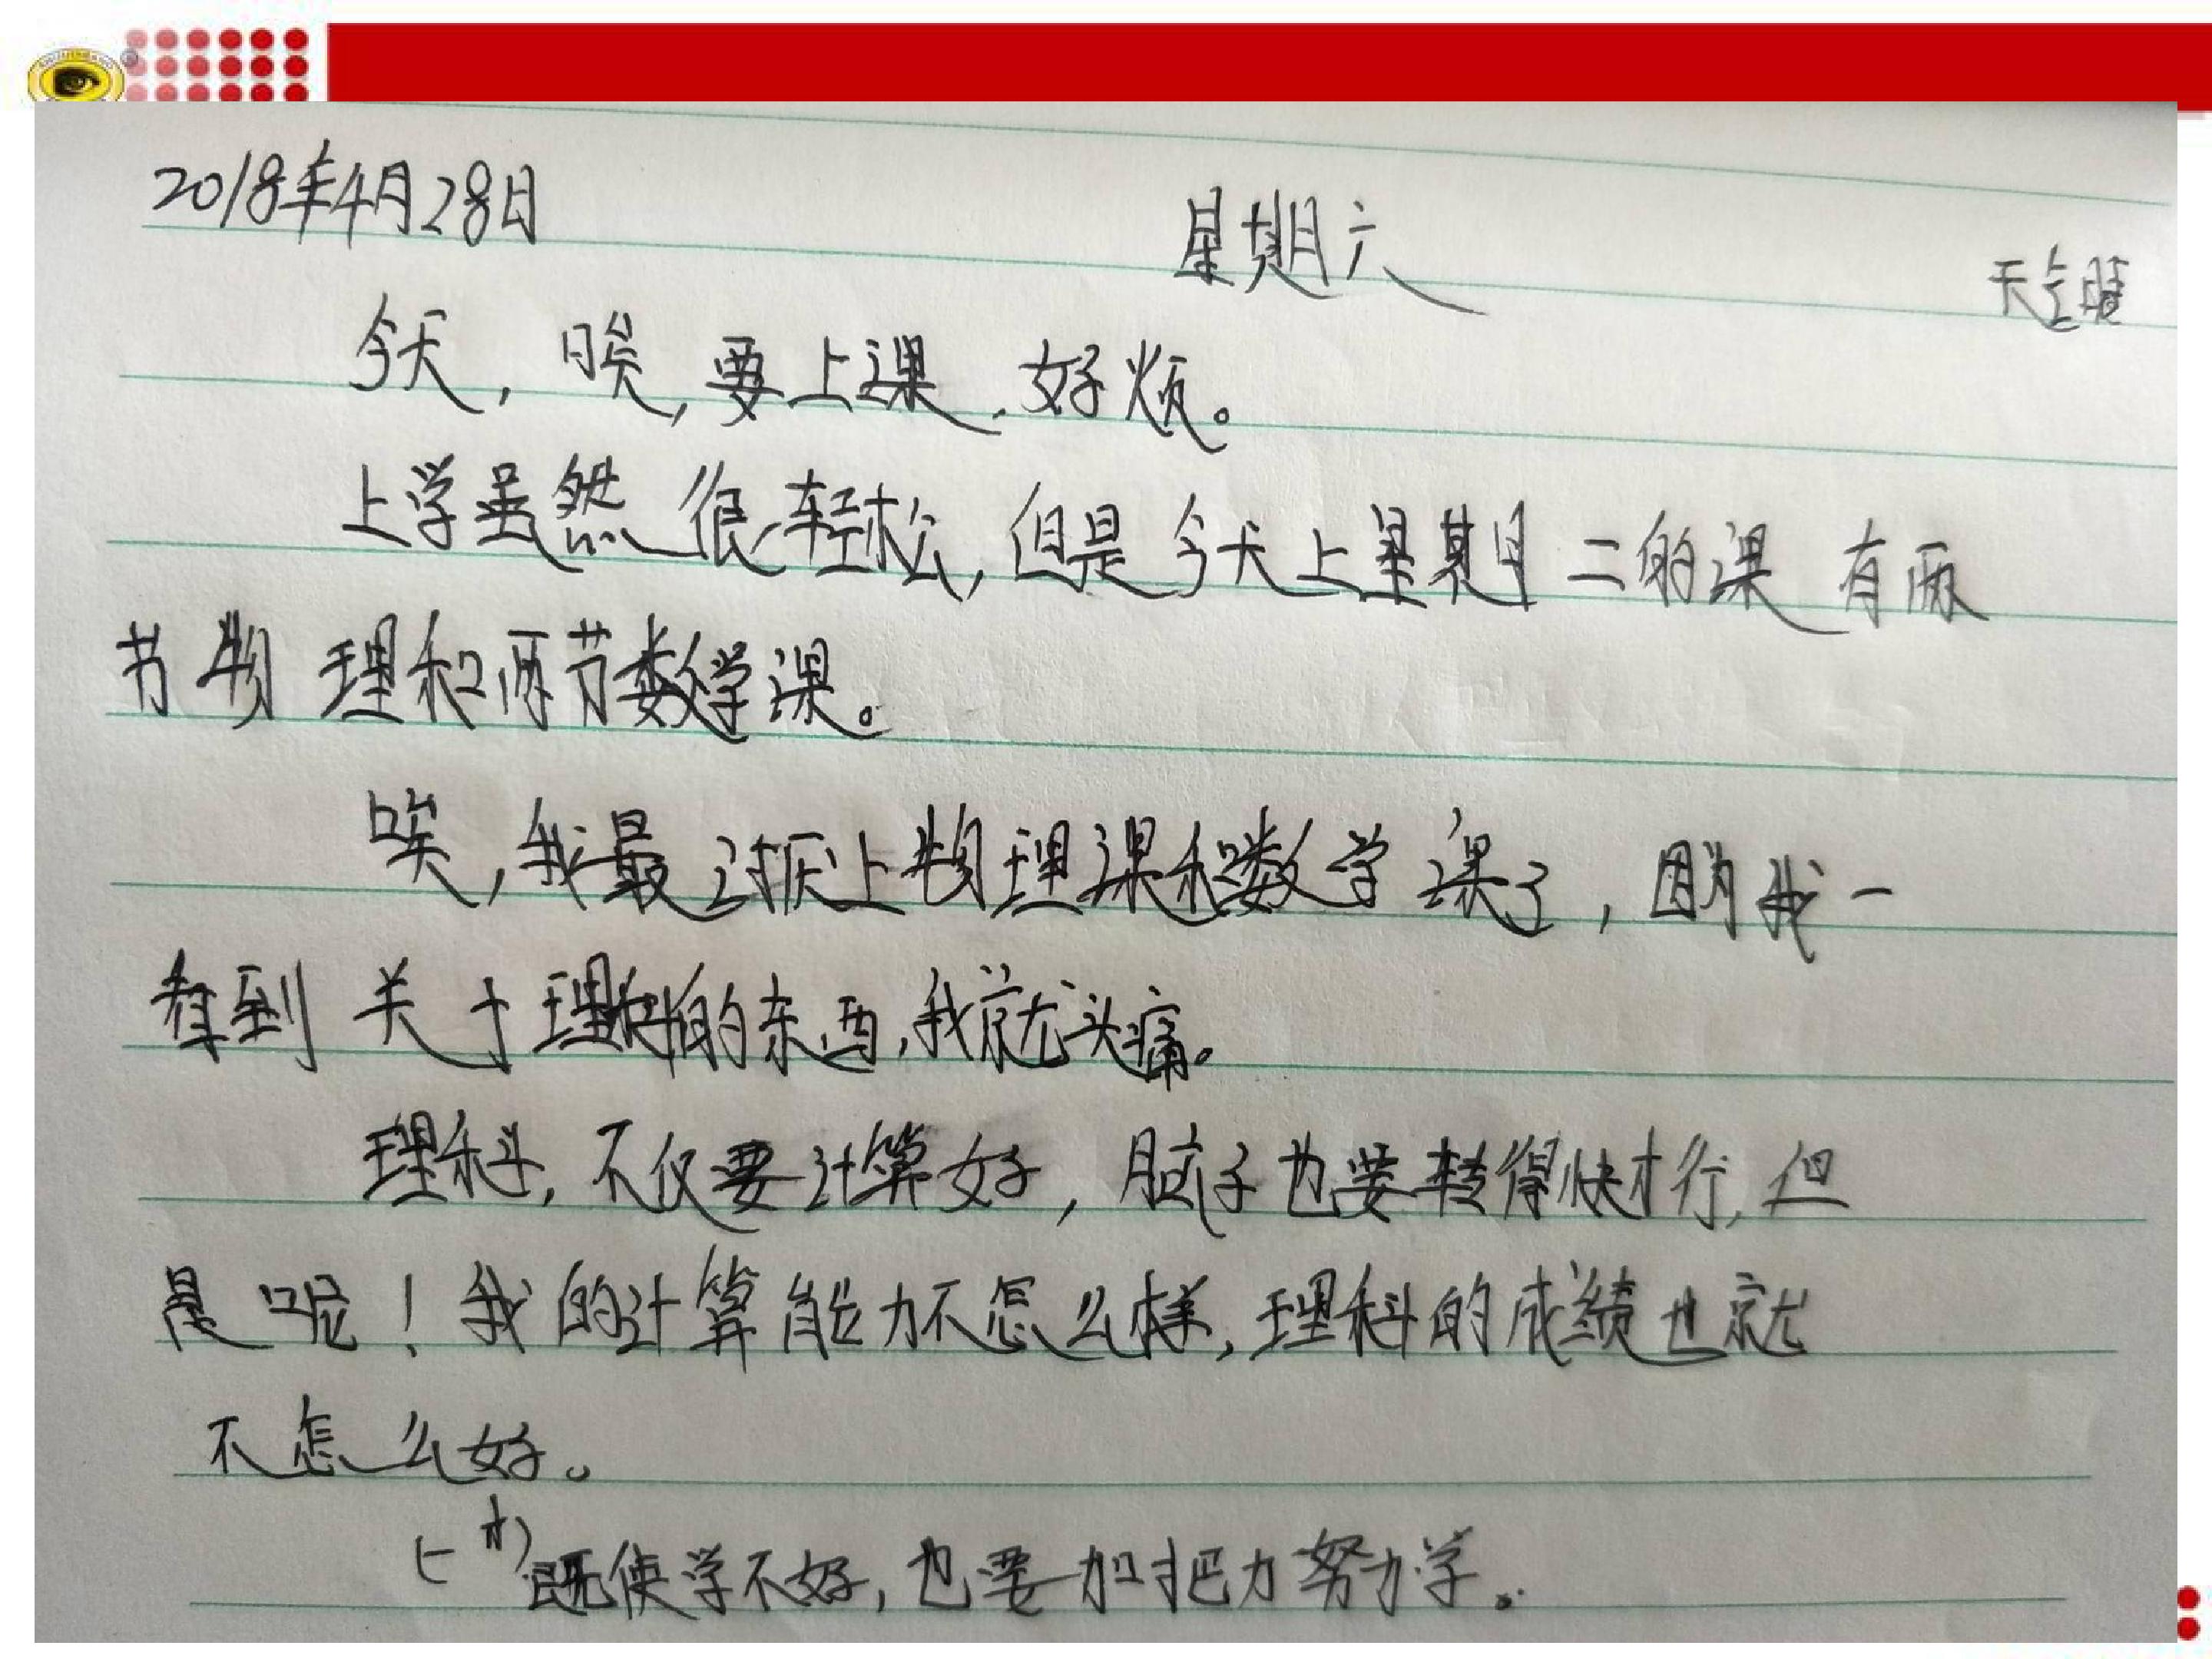 2018年4月28日 星期六 天气晴
今天，唉，要上课，好烦。
上学虽然很轻松，但是今天上星期二的课有两
节物理和两节数学课。
唉，我最讨厌上物理课和数学课了，因为我一
看到关于理科的东西，我就头痛。
理科，不仅要计算好，脑子也要转得快才行，但
是呢！我的计算能力不怎么样，理科的成绩也就
不怎么好。
既使学不好，也要加把力努力学。